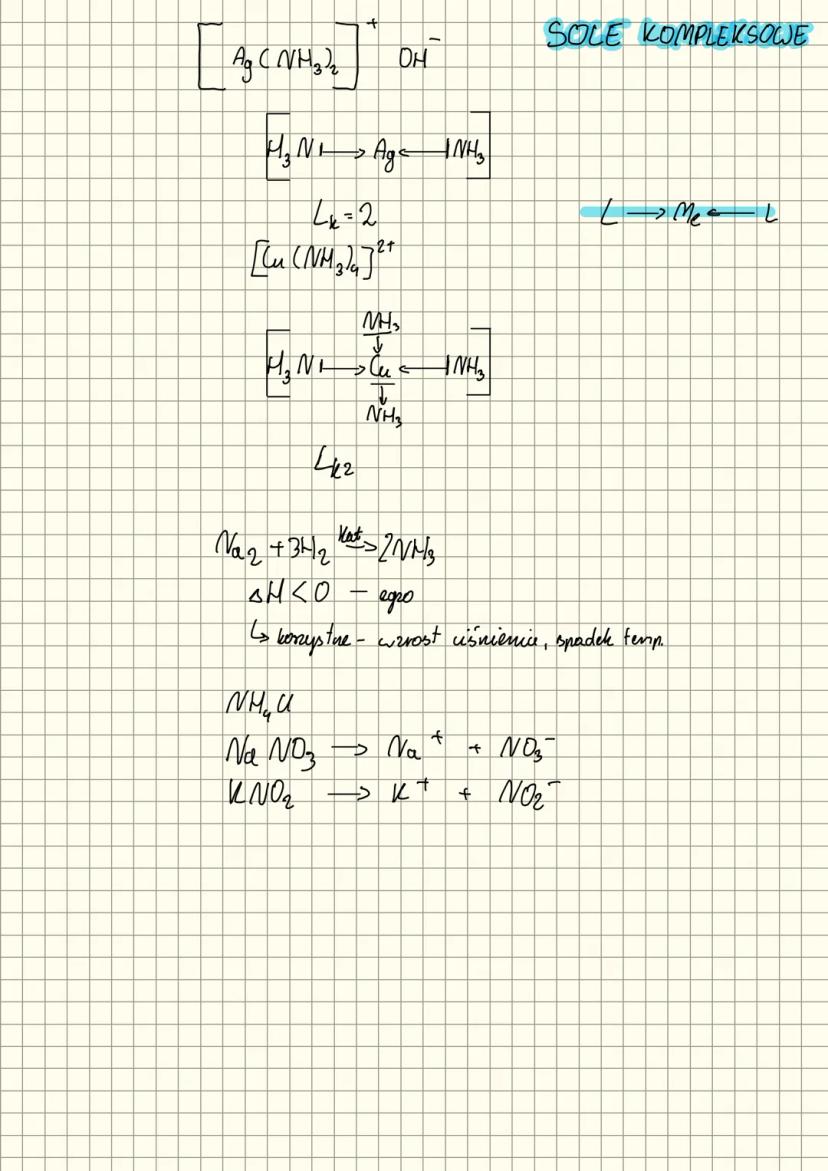 SOLE KOMPLEKSOWE
[Ag(NH₃)₂]⁺ OH⁻
[H₃N|⟶Ag⟵|NH₃]
L ⟶ Me ⟵ L
Lₖ = 2
[Cu(NH₃)₄]²⁺
NH₃
↓
[H₃N|⟶Cu⟵|NH₃]
↓
NH₃
Lₖ₂
Na₂ + 3H₂ kat⟶ 2NH₃
ΔH < 0 – egzo
↳ korzystne – wzrost ciśnienia, spadek temp.
NH₄Cl
NaNO₃ ⟶ Na⁺ + NO₃⁻
KNO₂ ⟶ K⁺ + NO₂⁻